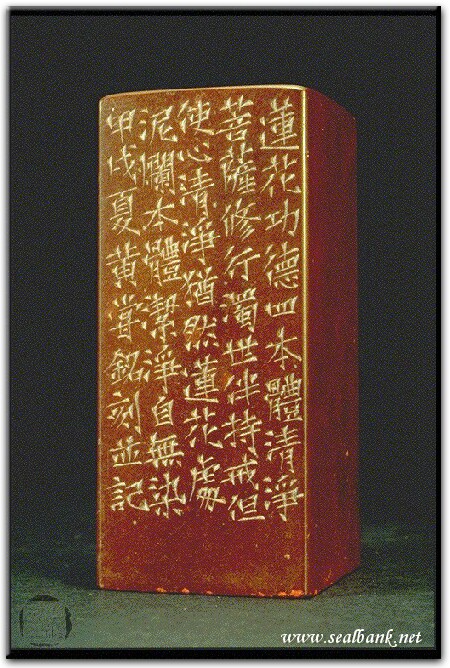 蓮花功德四本體清淨
菩薩修行濁世伴持戒但
使心清淨猶然蓮花處
泥爛本體潔淨自無染
甲戌夏黃嘗銘刻並記
www.sealbank.net